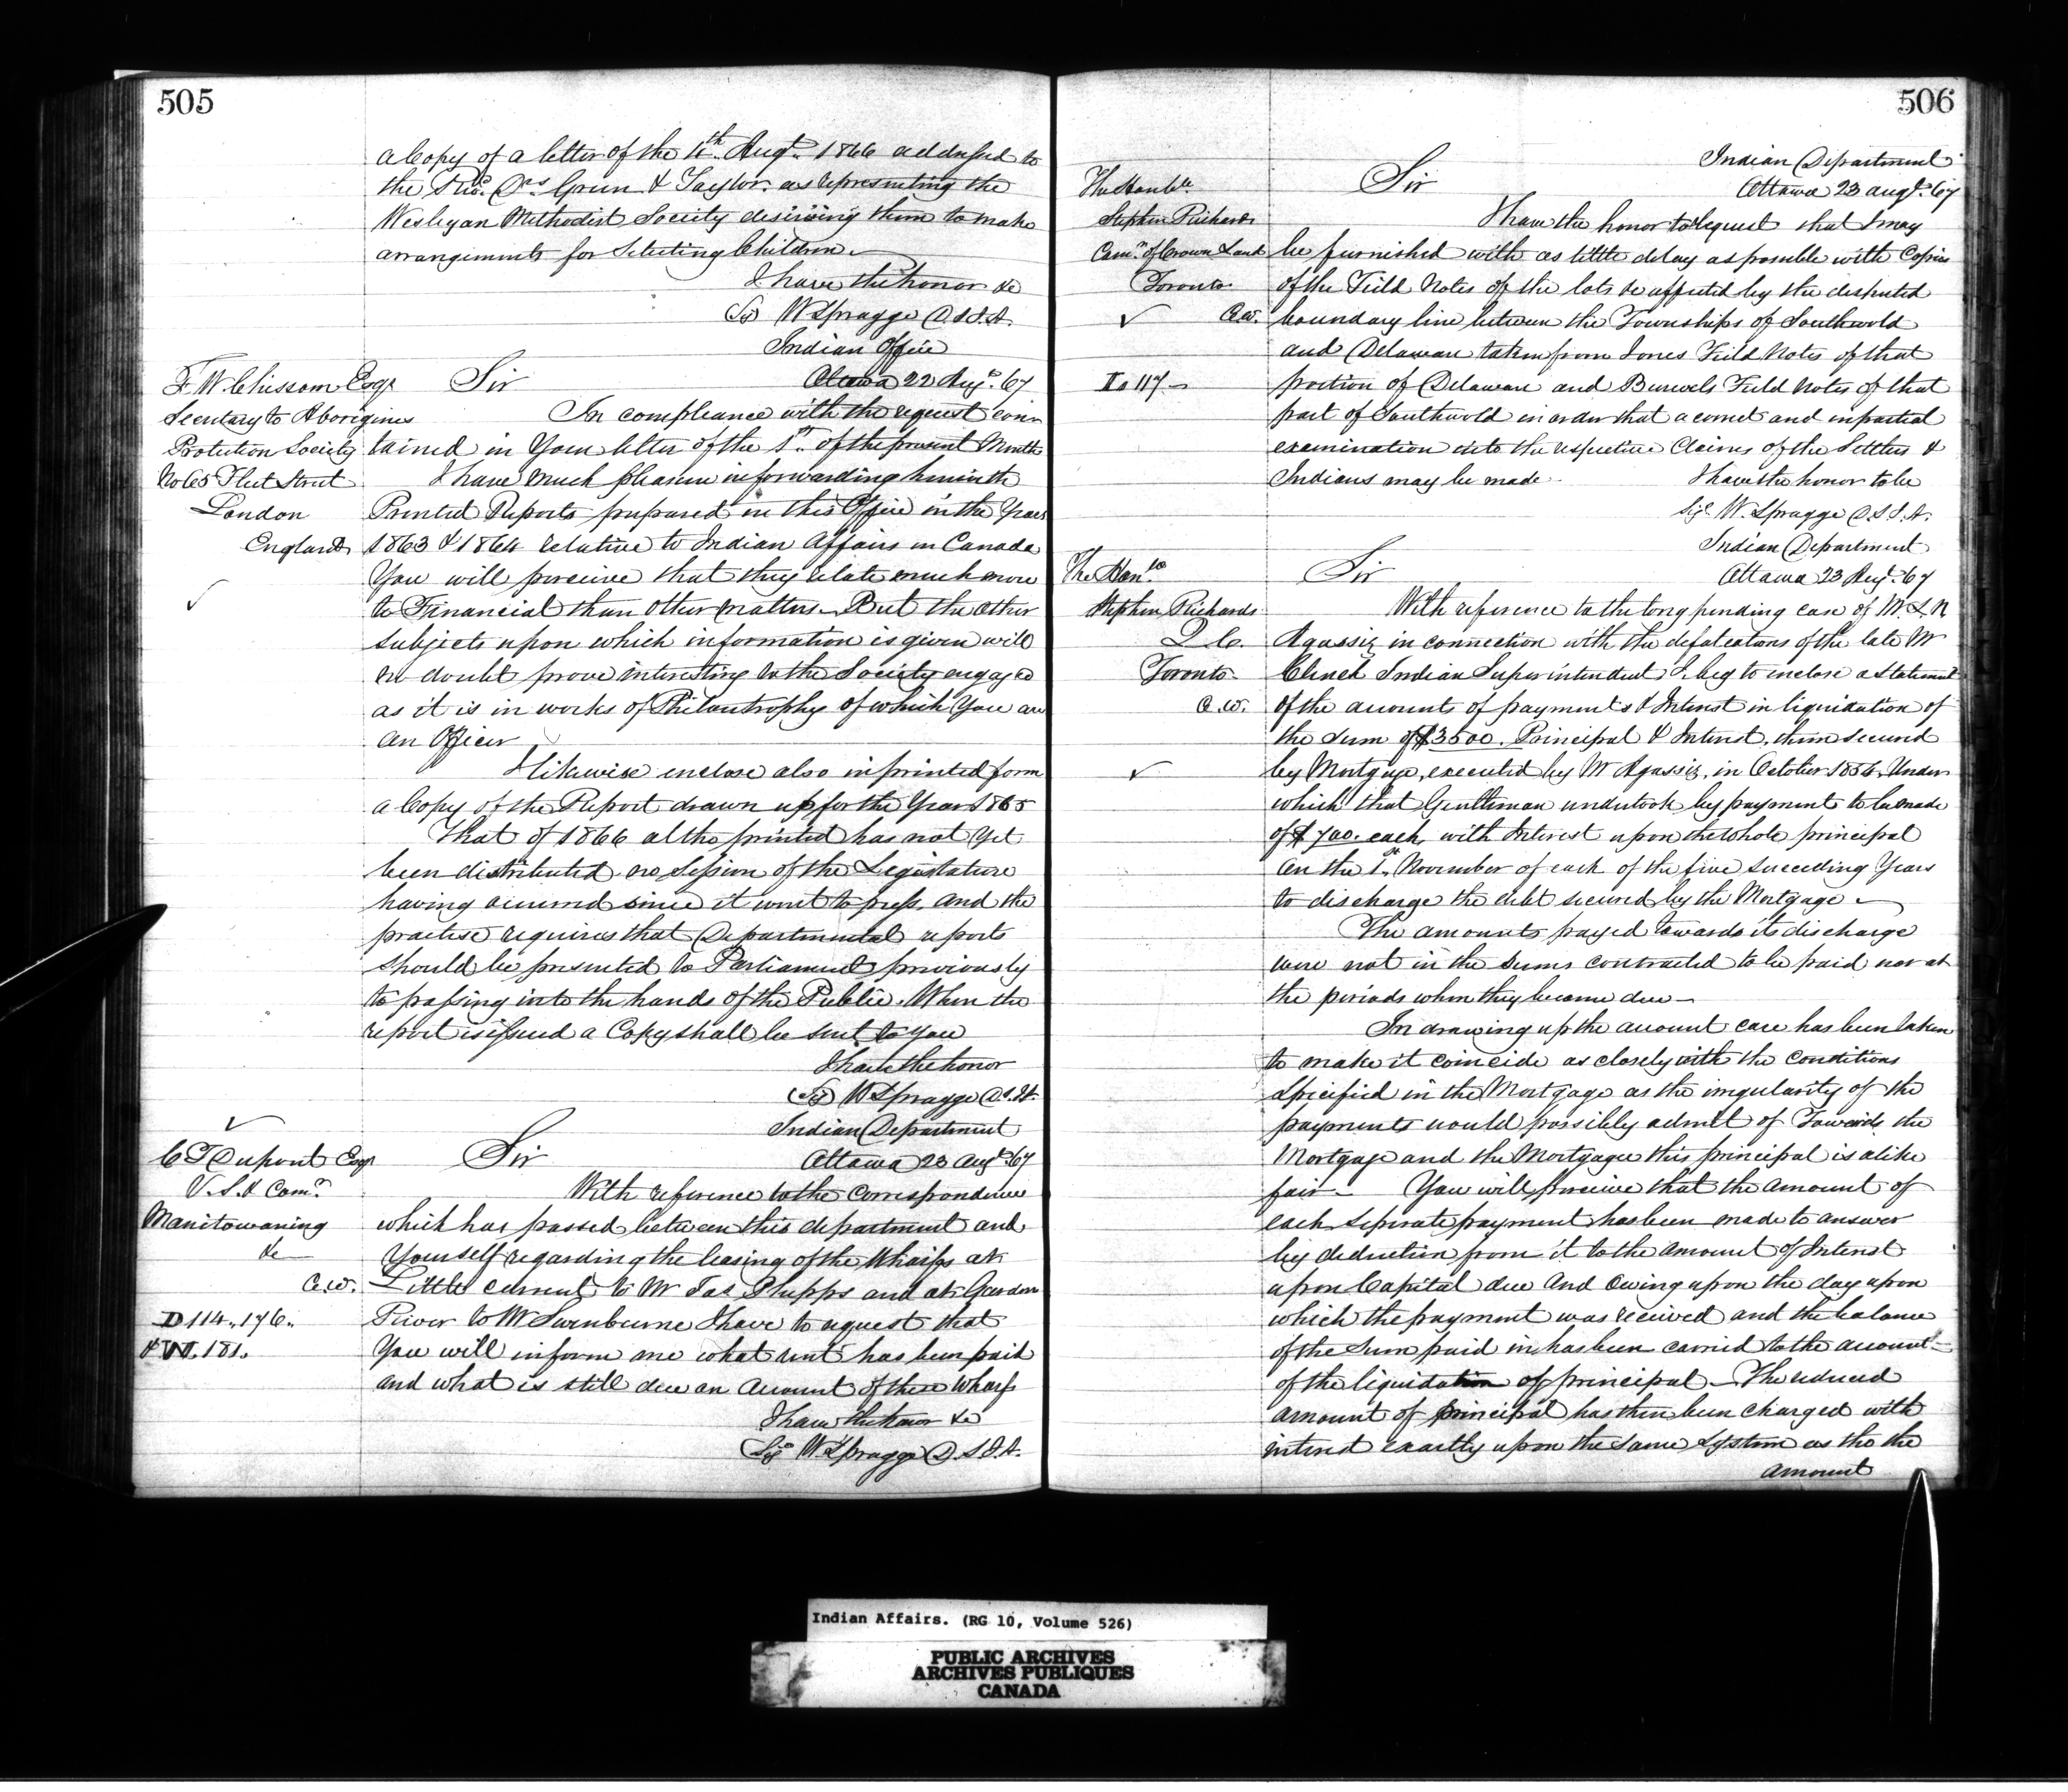 505
a Copy of a letter of the 4th Augt. 1866 addressed to
the Revd. Drs Green & Taylor as representing the
Wesleyan Methodist Society desiring them to make
arrangements for Selecting Children
I have the honor &c
(Sd) W Spragge D.S.I.A.
Indian Office
Ottawa 22 Augt. 67
F. W. Chissom Esqr
Secretary to Aborigines
Protection Society
No 65 Fleet Street
London
England
Sir
In compliance with the request con
tained in Your letter of the 1st. of the present Month
I have much pleasure in forwarding herewith
Printed Reports prepared in this Office in the Years
1863 & 1864 relative to Indian Affairs in Canada
You will perceive that they relate much more
to Financial than other matters But the other
subjects upon which information is given will
no doubt prove interesting to the Society engaged
as it is in works of Philantrophy of which You are
an Officer
I likewise enclose also in printed form
a Copy of the Report drawn up for the Year 1865
That of 1866 altho printed has not yet
been distributed no Session of the Legislature
having occurred since it went to press, and the
practise requires that Departmental reports
should be presented to Parliament previously
to passing into the hands of the Public. When the
report is issued a Copy shall be sent to you
I have the honor
(Sd) W Spragge D.S.I.A.
Indian Department
Ottawa 23 Augt. 67
C T Dupont Esqr
V.S. & Comr.
Manitowaning
&c
C.W.
D 114. 176.
& W. 181.
Sir
With reference to the correspondence
which has passed between this department and
Yourself regarding the leasing of the Wharfs at
Little current to Mr Jas Phipps and at Garden
River to Mr Swinburne I have to request that
You will inform me what rent has been paid
and what is still due on account of these Wharfs
I have the honor &c
Sigd W. Spragge D.S.I.A.
506
Indian Department
Ottawa 23 augt. 67
The Honble.
Stephen Richards
Comr. of Crown Lands
Toronto
C.W.
I. 117
Sir
I have the honor to request that I may
be furnished with as little delay as possible with Copies
of the Field Notes of the lots &c affected by the disputed
boundary line between the Townships of Southwold
and Delaware taken from Jones Field Notes of that
portion of Delaware and Burwels Field Notes of that
part of Southwold in order that a correct and impartial
examination into the respective Claims of the Settlers &
Indians may be made.
I have the honor to be
Sigd. W. Spragge D.S.I.A.
Indian Department
Ottawa 23 Augt. 67
The Honble
Stephen Richards
Q.C.
Toronto
C.W.
Sir
With reference to the long pending case of M. L. N.
Agassiz in connection with the defalcations of the late Mr
Clench Indian Superintendent I beg to inclose a Statement
of the amounts of payments & Interest in liquidation of
the sum of $3500. Principal & Interest, therein secured
by Mortgage, executed by Mr Agassiz, in October 1854, Under
which that Gentleman undertook by payments to be made
of $700. each, with Interest upon the whole principal
on the 1st. November of each of the five succeeding Years
to discharge the debt secured by the Mortgage
The amounts payed towards its discharge
were not in the sums contracted to be paid nor at
the periods when they became due
In drawing up the account care has been taken
to make it coincide as closely with the conditions
specified in the Mortgage as the irregularity of the
payments would possibly admit of Towards the
Mortgage and the Mortgagee this principal is alike
fair. You will perceive that the amount of
each seperate payment has been made to answer
by deduction from it to the amount of Interest
upon Capital due and Owing upon the day upon
which the payment was received and the balance
of the Sum paid in has been carried to the account
of the liquidation of principal. The reduced
amount of principal has then been charged with
interest exactly upon the same System as tho the
amount
Indian Affairs. (RG 10, Volume 526)
PUBLIC ARCHIVES
ARCHIVES PUBLIQUES
CANADA